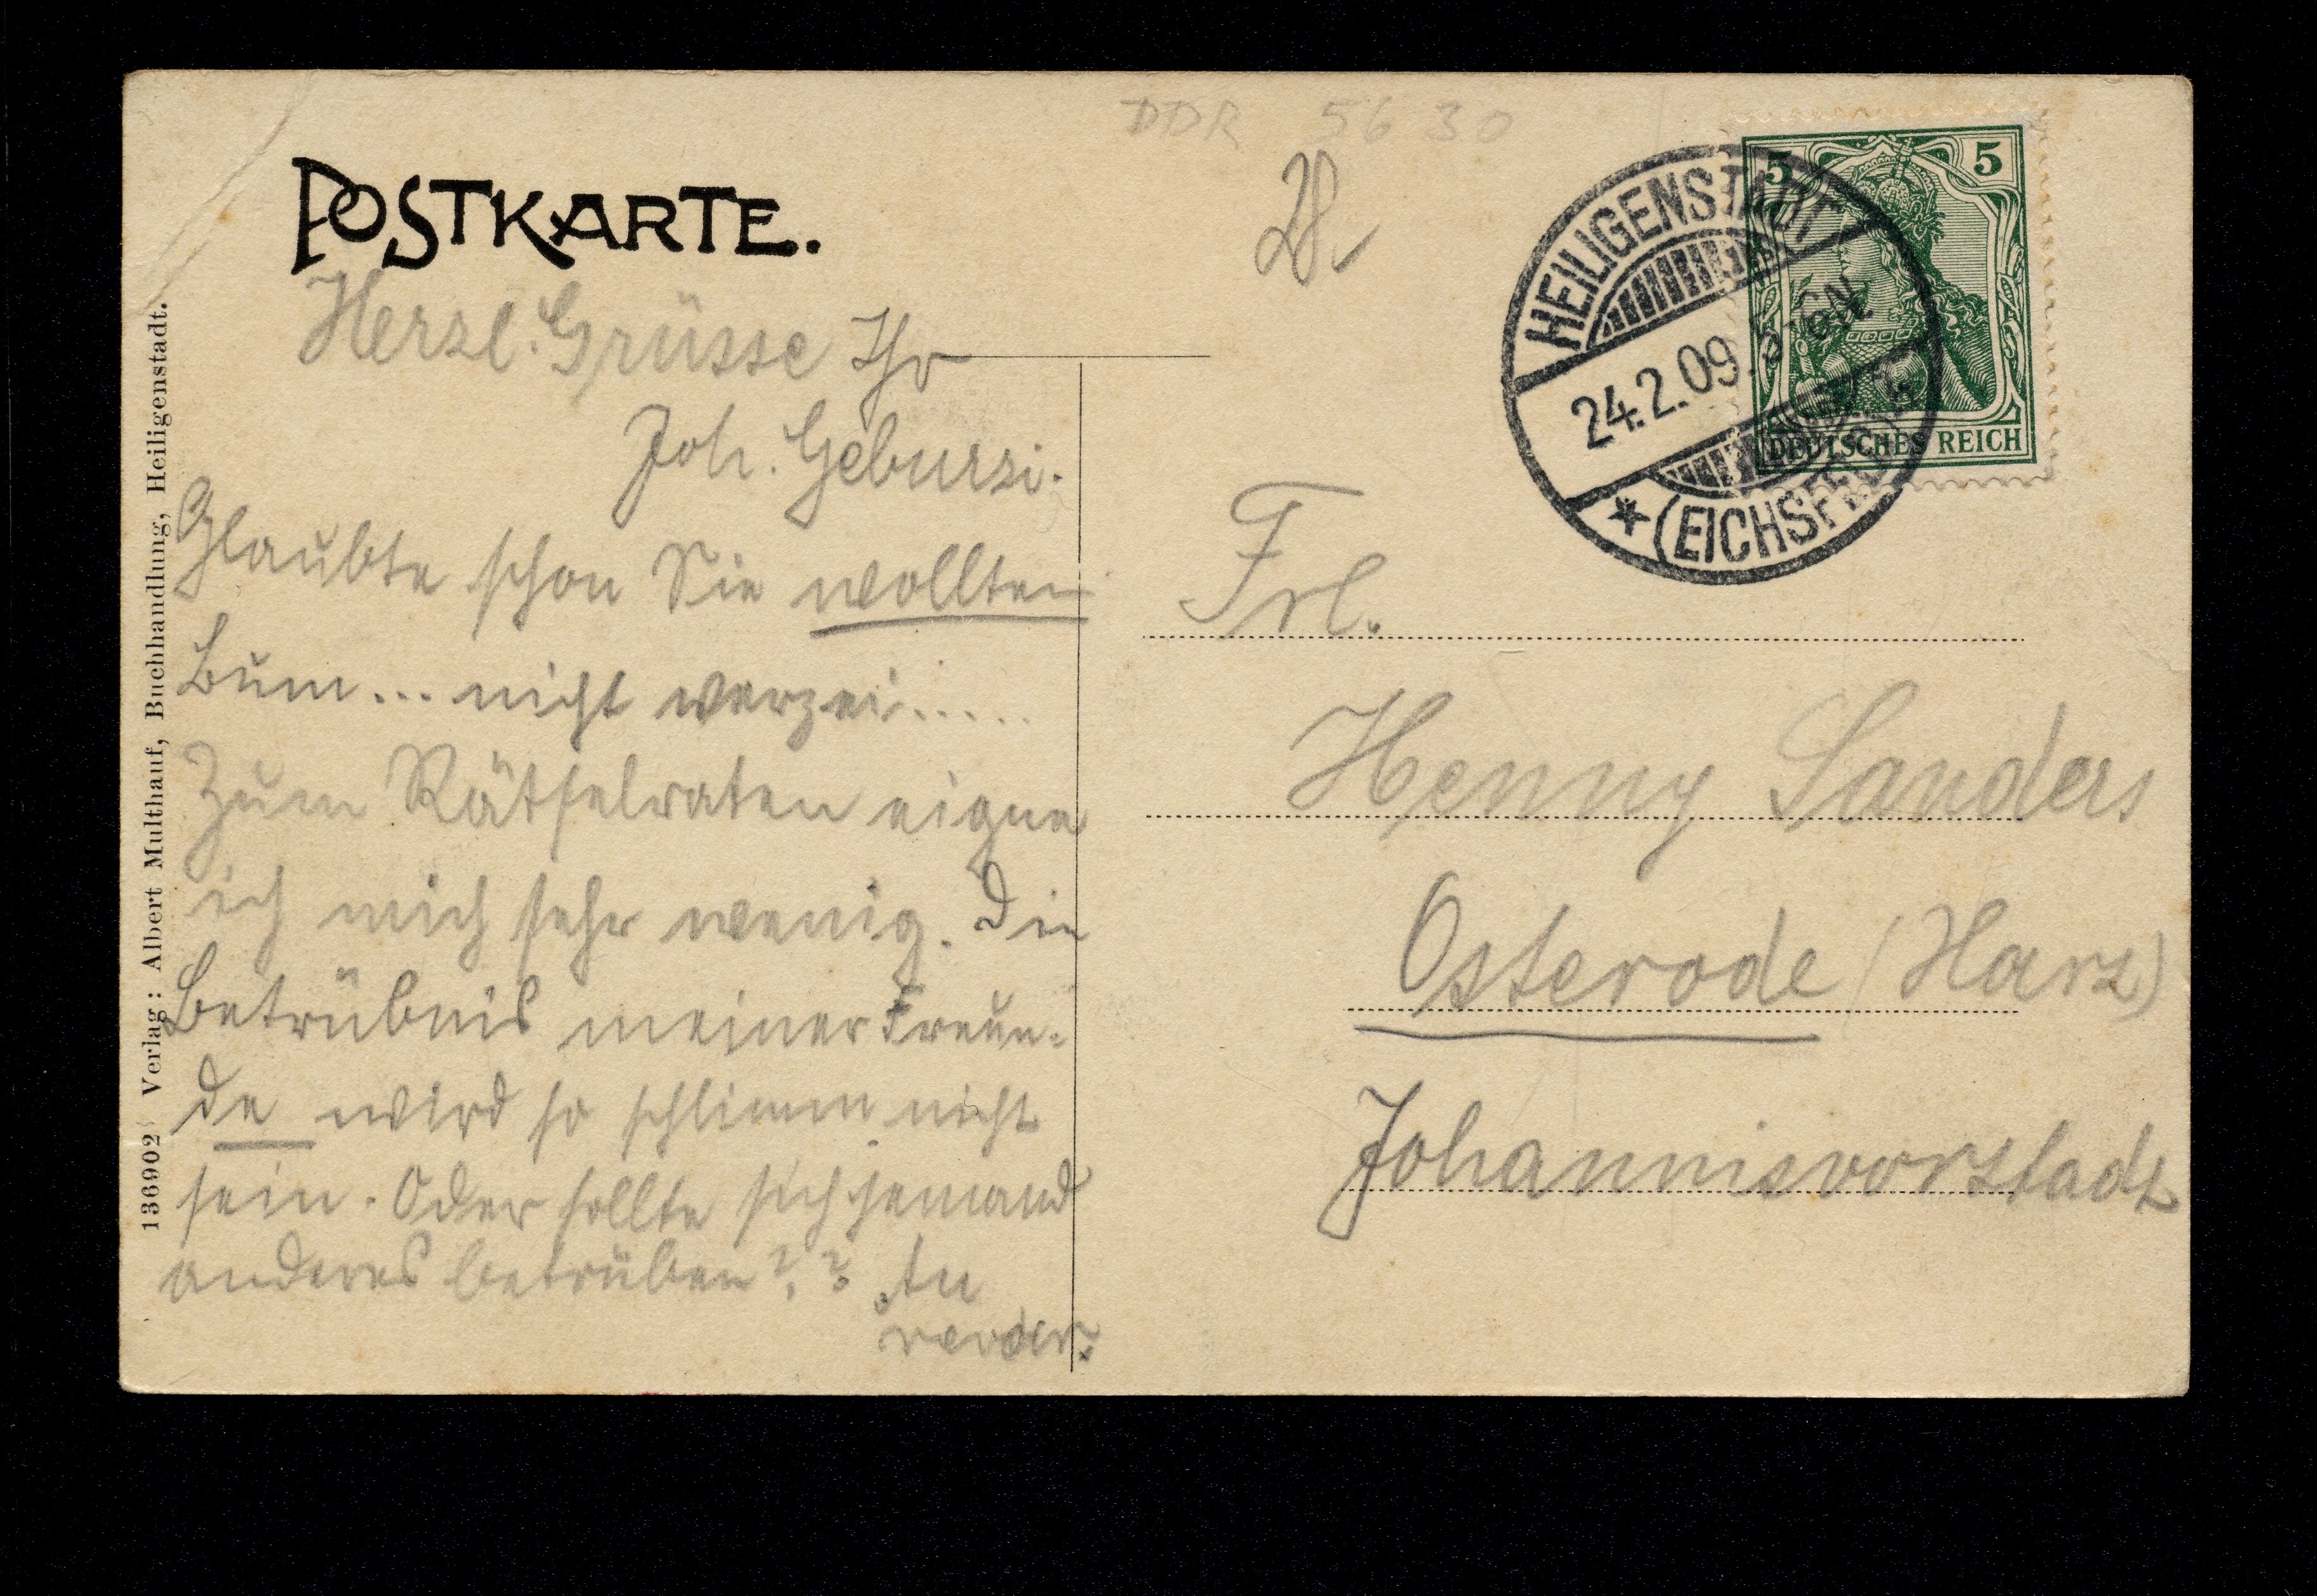 DDR 5630
POSTKARTE.
Herzl. Grüsse Ihr
Joh. Gebursi.
Glaubte schon Sie wollten
Bum... nicht verzei.....
Zum Rätselraten eigne
ich mich sehr wenig. Die
Betrübnis meiner Freun-
de wird so schlimm nicht
sein. Oder sollte sich jemand
anderes betrüben??
136902 Verlag: Albert Multhauf, Buchhandlung, Heiligenstadt.
HEILIGENSTADT
24.2.09. 5-6N.
* (EICHSFELD)
5 5
DEUTSCHES REICH
Frl.
Henny Sanders
Osterode (Harz)
Johannisvorstadt